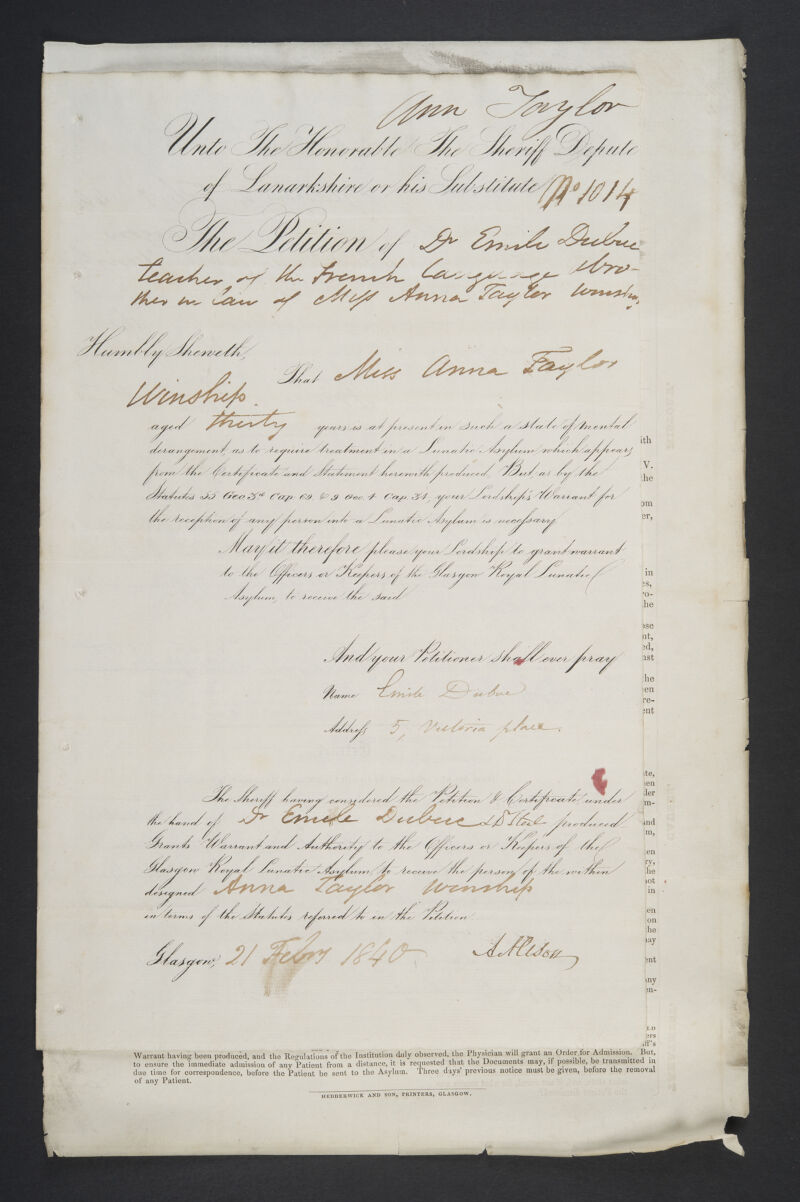 Ann Taylor
Unto The Honorable The Sheriff Depute
of Lanarkshire or his Substitute No 1014
The Petition of Dr Emile Dubuc
teacher of the French Language Bro-
ther in law of Miss Anna Taylor Winship
Humbly Sheweth,
That Miss Anna Taylor
Winship.
aged thirty years is at present in such a state of mental
derangement, as to require treatment in a Lunatic Asylum which appears
from the Certificate and Statement herewith produced. But, as by the
Statutes 55 Geo 3d Cap. 69. & 9 Geo 4 Cap. 34, your Lordship's Warrant for
the reception of any person into a Lunatic Asylum is necessary
May it therefore please your Lordship to grant warrant
to the Officers or Keepers of the Glasgow Royal Lunatic
Asylum, to receive the said
And your Petitioner shall ever pray
Name Emile Dubuc
Address 5, Victoria place.
The Sheriff having considered the Petition & Certificate under
the hand of Dr Emile Dubuc & Dr produced
Grants Warrant and Authority to the Officers or Keepers of the
Glasgow Royal Lunatic Asylum to receive the person of the within
designed Anna Taylor Winship
in terms of the Statutes referred to in the Petition
Glasgow, 21 Febry 1840 A Alison
Warrant having been produced, and the Regulations of the Institution duly observed, the Physician will grant an Order for Admission. But,
to ensure the immediate admission of any Patient from a distance, it is requested that the Documents may, if possible, be transmitted in
due time for correspondence, before the Patient be sent to the Asylum. Three days' previous notice must be given, before the removal
of any Patient.
HEDDERWICK AND SON, PRINTERS, GLASGOW.